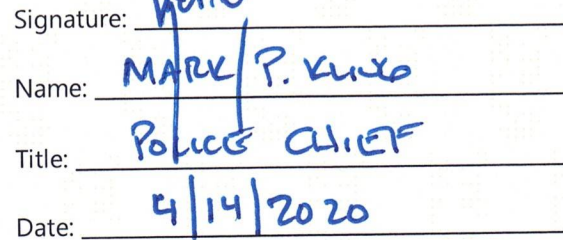 Signature:
Name: MARK P. KLING
Title: POLICE CHIEF
Date: 4/14/2020